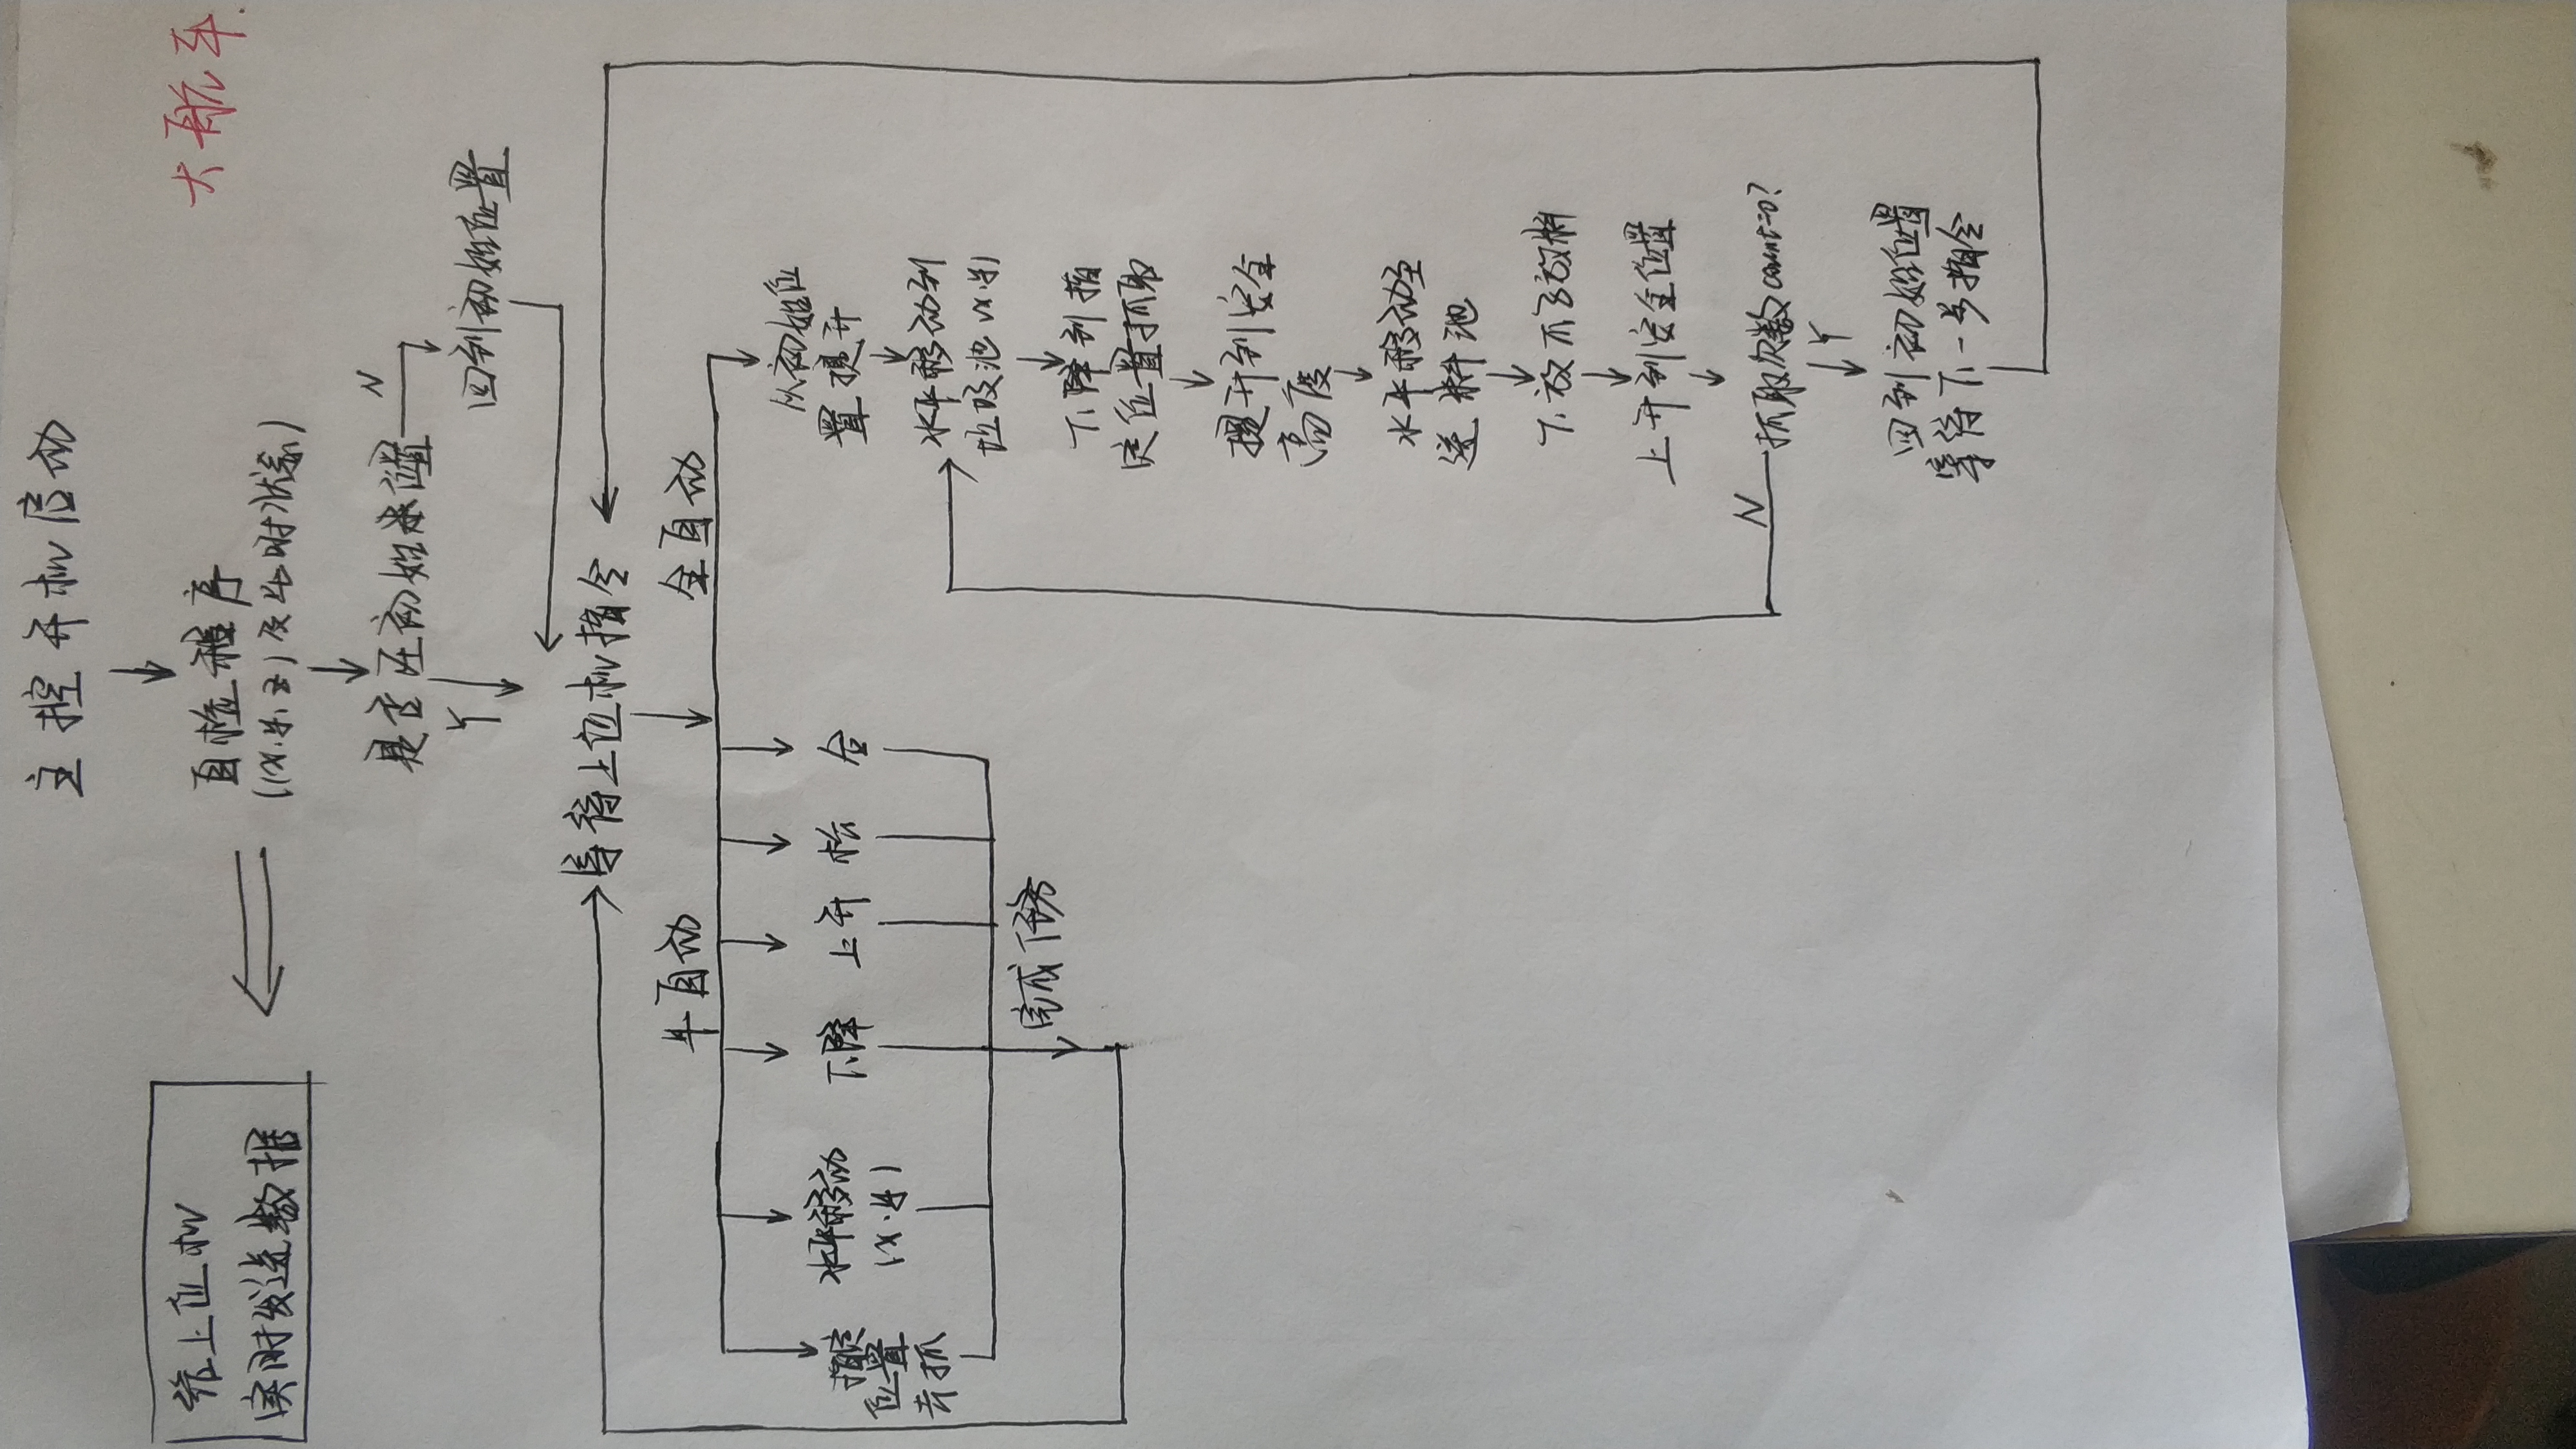 主控开机启动
大航车
给上位机
实时发送数据
自检程序
((x.y.z)及此时状态)
是否在初始来位置
N
Y
回到初始位置
等待上位机指令
半自动
全自动
指定
位置
去抓
水平移动
(x.y)
下降
上升
松
合
完成任务
从初始位
置提升
水平移动到
垃圾池(x.y)
下降到指
定位置抓取
提升到安全
高度
水平移动至
送料池
下放
放料
上升到安全位置
N
抓取次数count=0?
Y
回到初始位置
等待下一步指令